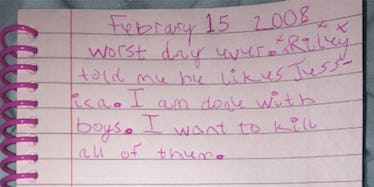 February 15 2008
worst day ever. xRileyxx
told me he likes Jess-
ica. I am done with
boys. I want to kill
all of them.